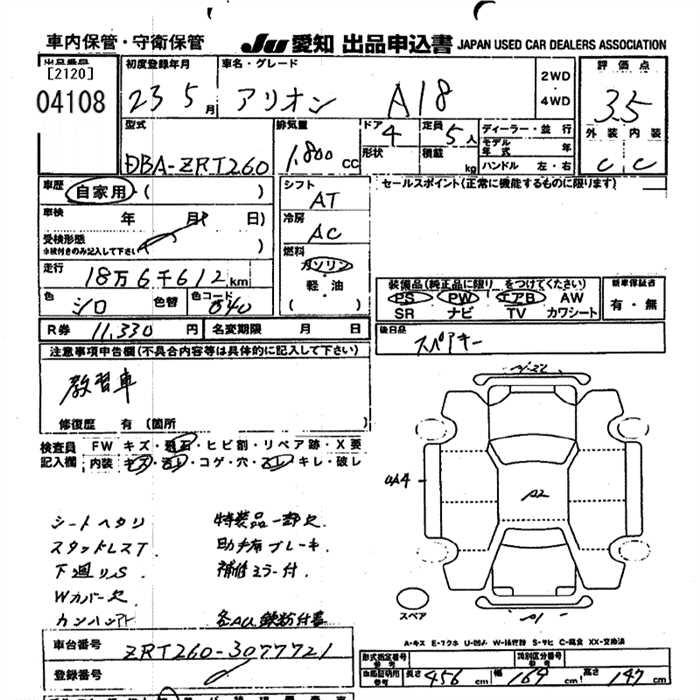 車内保管・守衛保管 JU 愛知 出品申込書 JAPAN USED CAR DEALERS ASSOCIATION
出品番号 初度登録年月 車名・グレード 2WD 評価点
[2120] 04108 23 5月 アリオン A18 4WD 3.5
型式 排気量 ドア 4 定員 5人 ディーラー・並行 外装 内装
DBA-ZRT260 1,800cc 形状 積載 kg モデル年式 年 C C
ハンドル 左・右
車歴 自家用 ( ) シフト AT セールスポイント(正常に機能するものに限ります)
車検 年 月 日) 冷房 AC
受検形態 ※検付きのみ記入して下さい 燃料 ガソリン
走行 18万6千612km 軽・油
色 シロ 色替 色コード 040 ( )
装備品(純正品に限り をつけてください) 新車保証書
PS PW エアB AW 有・無
SR ナビ TV カワシート
R券 11,330円 名変期限 月 日 後日品
スペアキー
注意事項申告欄(不具合内容等は具体的に記入して下さい)
教習車
修復歴 有 (箇所
検査員 FW キズ・飛石・ヒビ割・リペア跡・X要
記入欄 内装 キズ・ヨゴレ・コゲ・穴・スレ・キレ・破レ
シートヘタリ 特装品一部欠
スタッドレスT. 助手席ブレーキ.
下廻りS 補修ミラー付.
Wカバー欠
A4
A2
スペア
A1
A-キズ E-エクボ U-凹ミ W-補修跡 S-サビ C-腐食 XX-交換済
車台番号 ZRT260-3077721
登録番号
形式指定番号 類別区分番号
長さ 456cm 幅 169cm 高さ 147cm